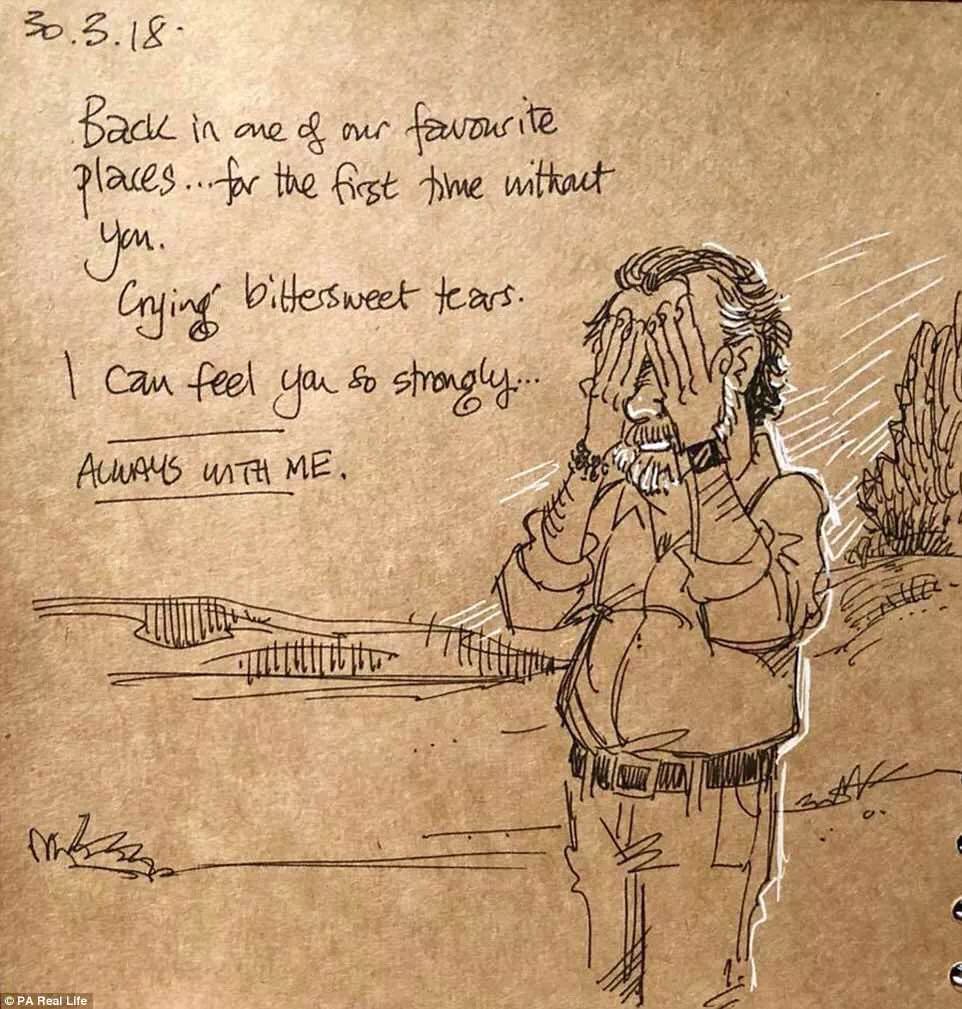 30.3.18.
Back in one of our favourite
places...for the first time without
you.
Crying bittersweet tears.
I can feel you so strongly...
ALWAYS WITH ME.
© PA Real Life